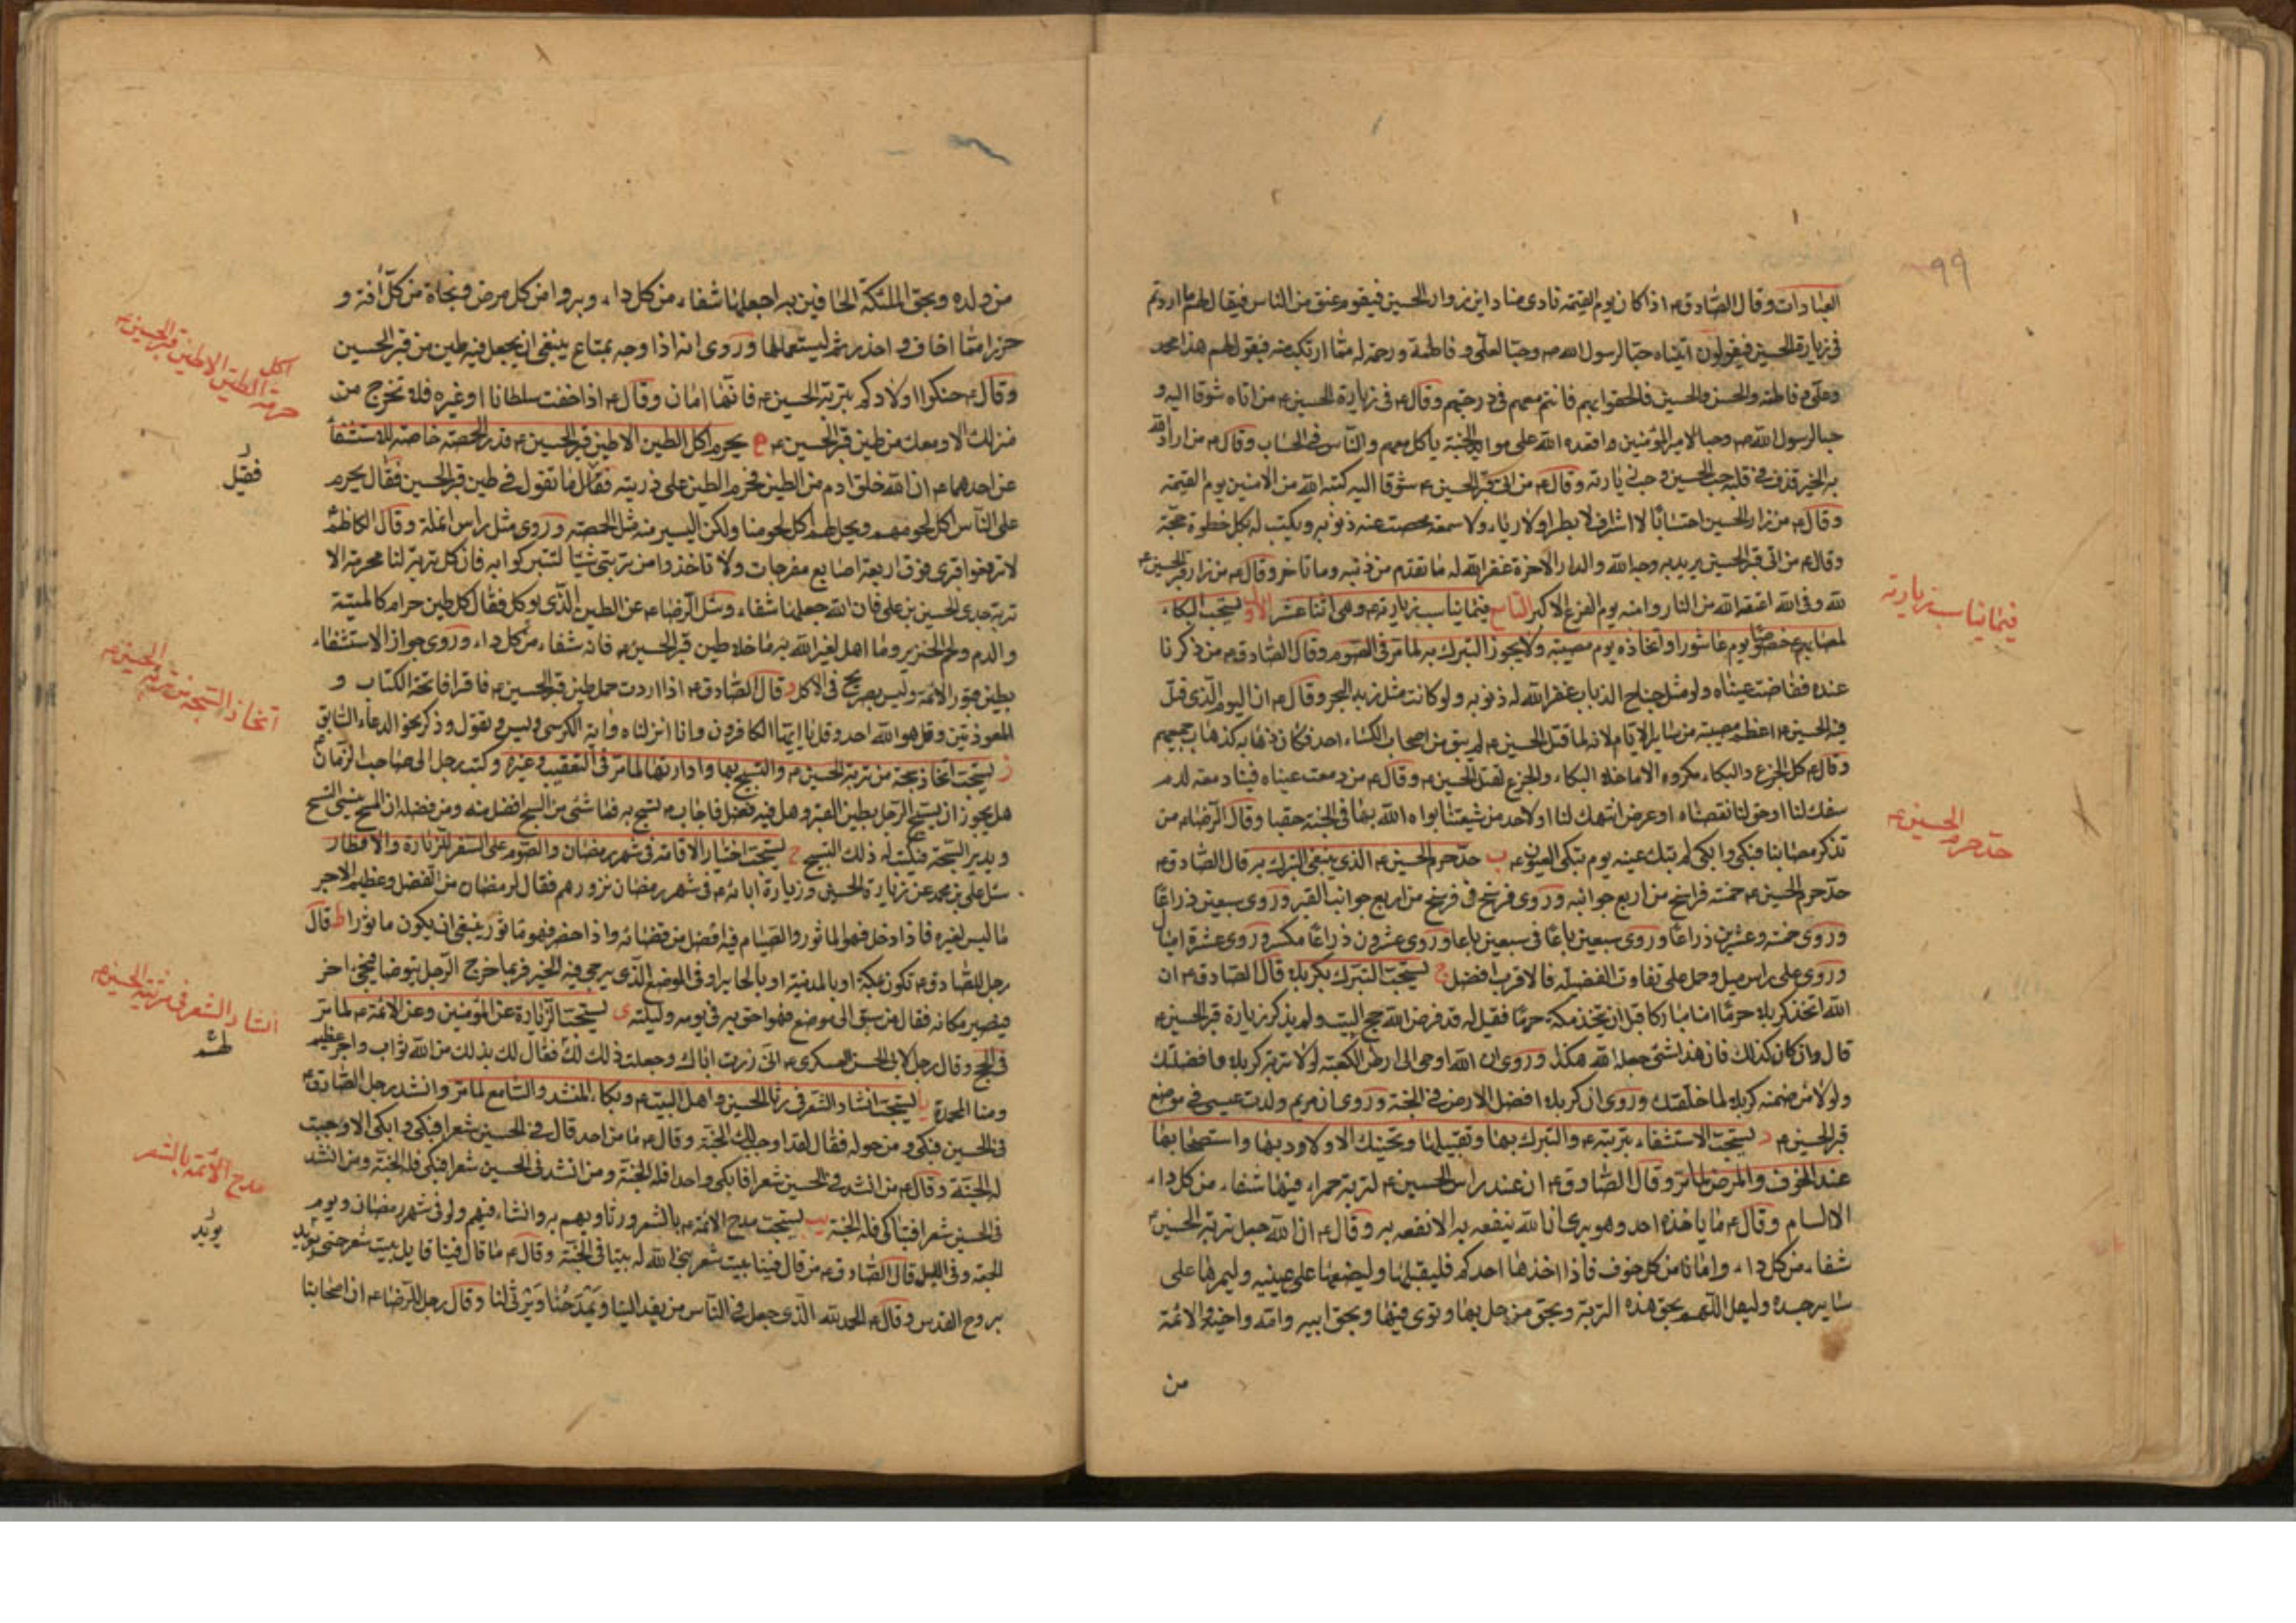 ٩٩
العبادات وقال الصادق ع اذا كان يوم القيمة نادى مناد اين زوار الحسين فيقوم عنق من الناس فيقال لهم ما اردتم
في زيارة الحسين فيقولون اتيناه حبا لرسول الله ص وحبا لعلي و فاطمة ورحمة له مما ارتكب منه فيقول لهم هذا محمد
وعلي و فاطمة والحسن والحسين فالحقوا بهم فانتم معهم في درجتهم وقال ع في زيارة الحسين ع من اتاه شوقا اليه و
حبا لرسول الله ص وحبا لامير المؤمنين ع اقعده الله على موايد الجنة ياكل معهم والناس في الحساب وقال ع من اراد الله
به الخير قذف في قلبه حب الحسين و حب زيارته وقال ع من اتى قبر الحسين ع شوقا اليه كتبه الله من الامنين يوم القيمة
وقال ع من زار الحسين احتسابا لا اشرا ولا بطرا ولا رياء ولا سمعة محصت عنه ذنوبه ويكتب له بكل خطوة حجة
وقال ع من اتى قبر الحسين يريد به وجه الله والدار الاخرة غفر الله له ما تقدم من ذنبه وما تاخر وقال ع من زار قبر الحسين ع
لله وفي الله اعتقه الله من النار وامنه يوم الفزع الاكبر التاسع فيما يناسب زيارته ع وهي اثنا عشر ا الاول يستحب البكاء
لمصابهم ع خصوصا يوم عاشورا واتخاذه يوم مصيبة ولا يجوز التبرك به لما مر في الصوم وقال الصادق ع من ذكرنا
عنده ففاضت عيناه ولو مثل جناح الذباب غفر الله له ذنوبه ولو كانت مثل زبد البحر وقال ع ان اليوم الذي قتل
فيه الحسين ع اعظم مصيبة من ساير الايام لانه لما قتل الحسين ع لم يبق من اصحاب الكساء احد فكان ذهابه كذهاب جميعهم
وقال ع كل الجزع والبكاء مكروه الا ما خلا البكاء والجزع لقتل الحسين ع وقال ع من دمعت عيناه فينا دمعة لدم
سفك لنا او حق لنا نقصناه او عرض انتهك لنا او لاحد من شيعتنا بواه الله بها في الجنة حقبا وقال الرضا ع من
تذكر مصابنا فبكى وابكى لم تبك عينه يوم تبكي العيون ب حد حرم الحسين ع الذي ينبغي التبرك به قال الصادق ع
حد حرم الحسين ع خمسة فراسخ من اربع جوانبه وروي فرسخ في فرسخ من اربع جوانب القبر وروي سبعين ذراعا
وروي خمسة وعشرين ذراعا وروي سبعين باعا في سبعين باعا وروي عشرون ذراعا مكسر وروي عشرة اميال
وروي على راس ميل وحمل على تفاوت الفضيلة فالاقرب افضل ج يستحب التبرك بكربلا قال الصادق ع ان
الله اتخذ كربلا حرما امنا مباركا قبل ان يتخذ مكة حرما فقيل له قد فرض الله حج البيت ولم يذكر زيارة قبر الحسين ع
قال وان كان كذلك فان هذا شيء جعله الله هكذا وروي ان الله اوحى الى ارض الكعبة لولا تربة كربلا ما فضلتك
ولولا من ضمنه كربلا لما خلقتك وروي ان كربلا افضل الارض في الجنة وروي ان مريم ولدت عيسى في موضع
قبر الحسين ع د يستحب الاستشفاء بتربته ع والتبرك بها وتقبيلها وتحنيك الاولاد بها واستصحابها
عند الخوف والمرض لما مر وقال الصادق ع ان عند راس الحسين ع لتربة حمراء فيها شفاء من كل داء
الا السام وقال ع ما ياخذه احد وهو يرى ان الله ينفعه به الا نفعه به وقال ع ان الله جعل تربة الحسين ع
شفاء من كل داء وامانا من كل خوف فاذا اخذها احدكم فليقبلها وليضعها على عينيه وليمرها على
ساير جسده وليقل اللهم بحق هذه التربة وبحق من حل بها وثوى فيها وبحق ابيه وامه واخيه والائمة
من
فيما يناسب زيارته
حد حرم الحسين ع
من ولده وبحق الملئكة الحافين به اجعلها شفاء من كل داء وبروا من كل مرض ونجاة من كل افة و
حرزا مما اخاف و احذر ثم ليستعملها وروي انه اذا وجه بمتاع ينبغي ان يجعل فيه طين من قبر الحسين
وقال ع حنكوا اولادكم بتربة الحسين ع فانها امان وقال ع اذا خفت سلطانا او غيره فلا تخرج من
منزلك الا ومعك من طين قبر الحسين ع يحرم اكل الطين الا طين قبر الحسين ع قدر الحمصة خاصة للاستشفاء
عن احدهما ع ان الله خلق ادم من الطين فحرم الطين على ذريته فقال ما تقول في طين قبر الحسين فقال يحرم
على الناس اكل لحومهم ويحل لهم اكل لحومنا ولكن اليسير منه مثل الحمصة وروي مثل راس انملة وقال الكاظم
لا ترفعوا قبري فوق اربعة اصابع مفرجات ولا تاخذوا من تربتي شيئا لتتبركوا به فان كل تربة لنا محرمة الا
تربة جدي الحسين بن علي فان الله جعلها شفاء وسئل الرضا ع عن الطين الذي يوكل فقال كل طين حرام كالميتة
والدم ولحم الخنزير وما اهل لغير الله به ما خلا طين قبر الحسين ع فانه شفاء من كل داء وروي جواز الاستشفاء
بطين قبور الائمة وليس بصريح في الاكل و قال الصادق ع اذا اردت حمل طين قبر الحسين ع فاقرا فاتحة الكتاب و
المعوذتين وقل هو الله احد وقل يا ايها الكافرون وانا انزلناه واية الكرسي ويس ويقول وذكر نحو الدعاء السابق
ز يستحب اتخاذ سبحة من تربة الحسين ع والتسبيح بها وادارتها لما مر في التعقيب وغيره وكتب رجل الى صاحب الزمان ع
هل يجوز ان يسبح الرجل بطين القبر وهل فيه فضل فاجاب ع يسبح به فما شيء من السبح افضل منه ومن فضله ان المسبح ينسى التسبيح
ويدير السبحة فيكتب له ذلك التسبيح ح يستحب اختيار الاقامة في شهر رمضان والصوم على السفر للزيارة والافطار
سئل علي بن محمد عن زيارة الحسين وزيارة ابائه ع في شهر رمضان نزورهم فقال لرمضان من الفضل وعظيم الاجر
ما ليس لغيره فاذا دخل فهو الماثور والصيام فيه افضل من قضائه واذا حضر فهو ماثور ينبغي ان يكون ماثورا ط قال
رجل للصادق ع نكون بمكة او بالمدينة او بالحاير او في الموضع الذي يرجى فيه الخير فربما خرج الرجل يتوضا فيجيء اخر
فيصير مكانه فقال من سبق الى موضع فهو احق به في يومه وليلته ى يستحب الزيارة عن المؤمنين وعن الائمة ع لما مر
في الحج وقال رجل لابي الحسن العسكري ع اني زرت اباك وجعلت ذلك لك فقال لك بذلك من الله ثواب واجر عظيم
ومنا المحمدة يا يستحب انشاد الشعر في رثا الحسين و اهل البيت ع وبكاء المنشد والسامع لما مر وانشد رجل الصادق ع
في الحسين فبكى و من حوله فقال لقد اوجب لك الجنة وقال ع ما من احد قال في الحسين شعرا فبكى وابكى الا وجبت
له الجنة وقال ع من انشد في الحسين شعرا فابكى واحدا فله الجنة ومن انشد في الحسين شعرا فبكى فله الجنة ومن انشد
في الحسين شعرا فتباكى فله الجنة يب يستحب مدح الائمة ع بالشعر ورثاوهم به وانشاء فيهم ولو في شهر رمضان ويوم
الجمعة وفي الليل قال الصادق ع من قال فينا بيت شعر بنى الله له بيتا في الجنة وقال ع ما قال فينا قايل بيت شعر حتى يؤيد
بروح القدس وقال ع الحمد لله الذي جعل في الناس من يفد الينا ويمدحنا ويرثي لنا وقال رجل للرضا ع ان اصحابنا
حرمة اكل الطين الا طين قبر الحسين ع
فقيل
اتخاذ السبحة من تربة الحسين ع
انشاد الشعر في مرثية الحسين ع
مدح الائمة بالشعر
يويد